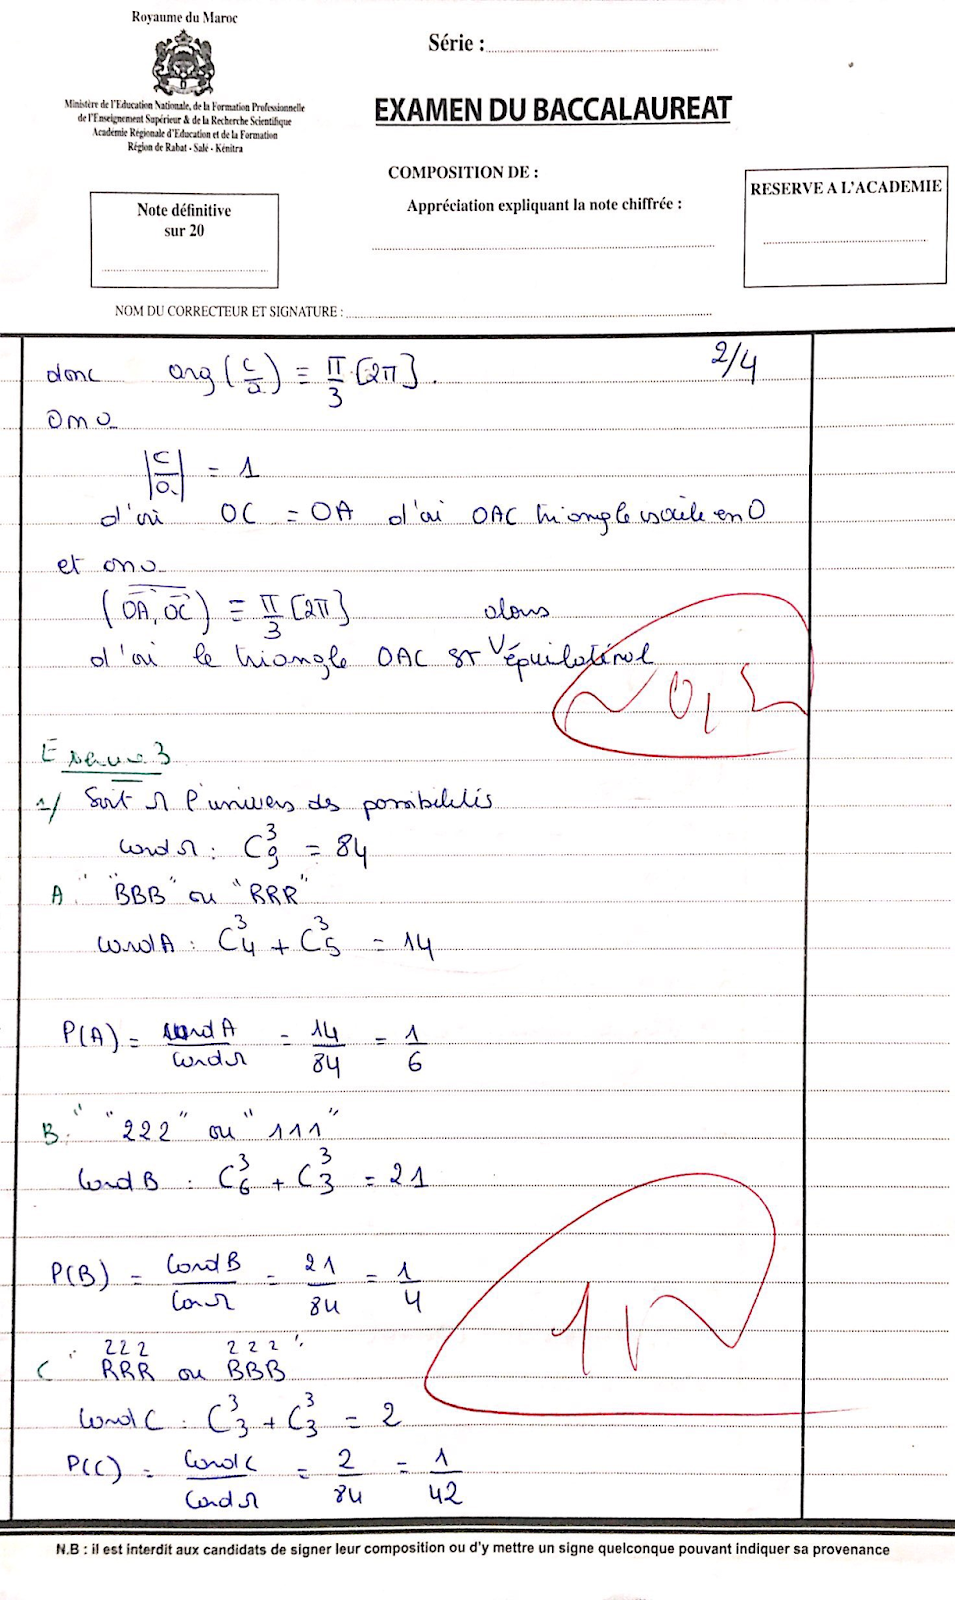 Royaume du Maroc
Ministère de l'Education Nationale, de la Formation Professionnelle
de l'Enseignement Supérieur & de la Recherche Scientifique
Académie Régionale d'Education et de la Formation
Région de Rabat - Salé - Kénitra
Série :
EXAMEN DU BACCALAUREAT
COMPOSITION DE :
Appréciation expliquant la note chiffrée :
RESERVE A L'ACADEMIE
Note définitive
sur 20
NOM DU CORRECTEUR ET SIGNATURE :
2/4
donc arg(c/a) ≡ π/3 [2π].
On a
|c/a| = 1
d'où OC = OA d'où OAC triangle isocèle en O
et on a
(OA, OC) ≡ π/3 [2π] alors
d'où le triangle OAC est équilatéral
Exercice 3
1/ Soit Ω l'univers des possibilités
card Ω : C₉³ = 84
A : " "BBB" ou "RRR" "
card A : C₄³ + C₅³ = 14
P(A) = card A / card Ω = 14/84 = 1/6
B : " "222" ou "111" "
card B : C₆³ + C₃³ = 21
P(B) = card B / car Ω = 21/84 = 1/4
222 222
C " RRR ou BBB "
card C : C₃³ + C₃³ = 2
P(C) = card C / card Ω = 2/84 = 1/42
N.B : il est interdit aux candidats de signer leur composition ou d'y mettre un signe quelconque pouvant indiquer sa provenance